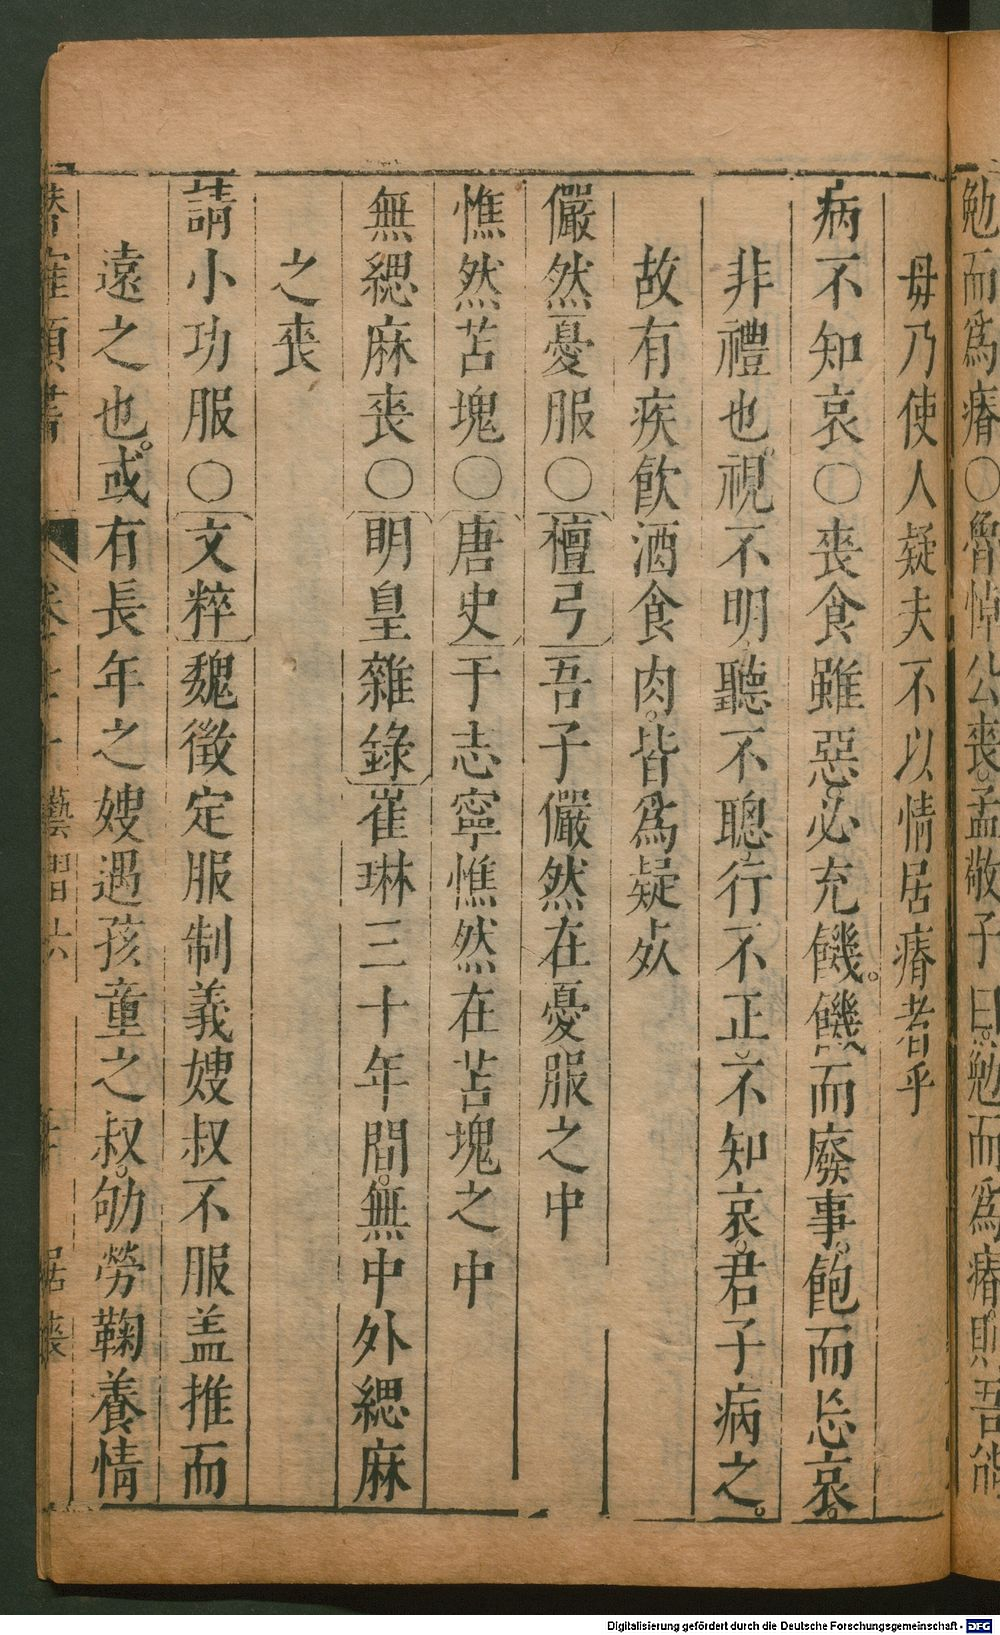 勉而爲瘠○魯悼公喪。孟敬子曰。勉而爲瘠。則吾能
毋乃使人疑夫不以情居瘠者乎
病不知哀○喪食雖惡。必充饑。饑而廢事。飽而忘哀。
非禮也。視不明聽不聰行不正不知哀。君子病之。
故有疾飲酒食肉。皆爲疑𣦸
儼然憂服○檀弓吾子儼然在憂服之中
憔然苫塊○唐史于志寧憔然在苫塊之中
無緦麻喪○明皇雜錄崔琳三十年間。無中外緦麻
之喪
請小功服○文粹魏徵定服制義嫂叔不服盖推而
遠之也。或有長年之嫂遇孩童之叔。劬勞鞠養情
類書
居喪
Digitalisierung gefördert durch die Deutsche Forschungsgemeinschaft - DFG